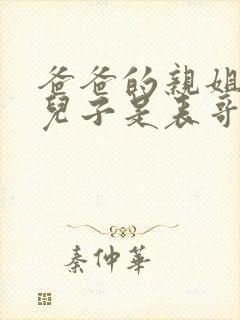 爸爸的親姐
兒子是表哥
秦仲華